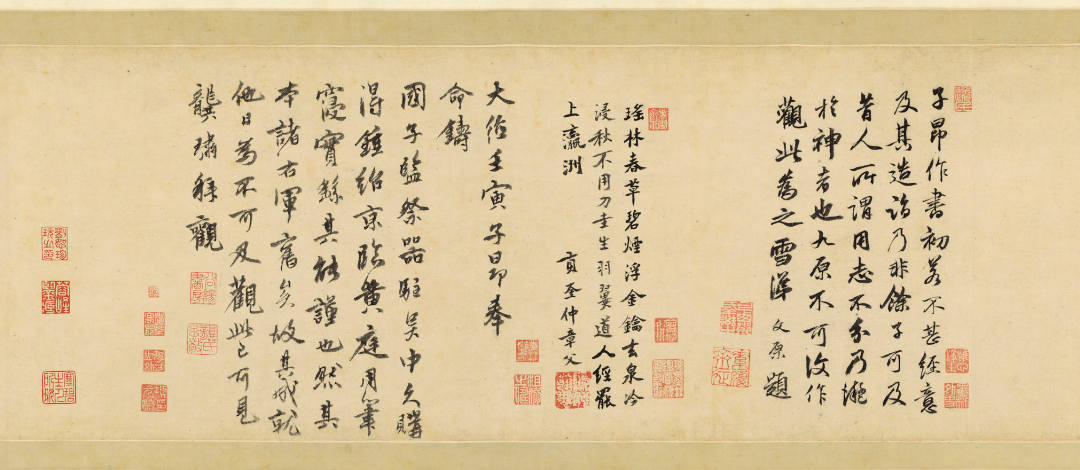 子昂作書初若不甚經意
及其造詣乃非餘子可及
昔人所謂用志不分乃凝
於神者也九原不可復作
觀此為之雪涕 文原題
瑤林春草碧煙浮金鑰玄泉冷
浸秋不用刀圭生羽翼道人經罷
上瀛洲
貢奎仲章父
大德壬寅子昂奉
命鑄
國子監祭器駐吳中久購
得鍾紹京臨黃庭用筆
寖實繇其能謹也然其
本諸右軍舊矣故其成就
他日為不可及觀此已可見
龔璛拜觀